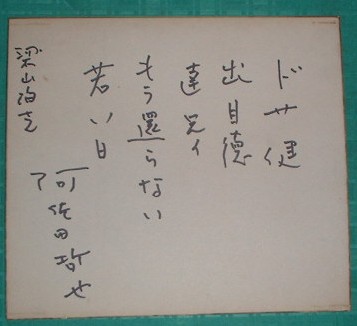 ドサ健
出目徳
達兄ィ
もう還らない
若い日
阿佐田哲也
梁山泊